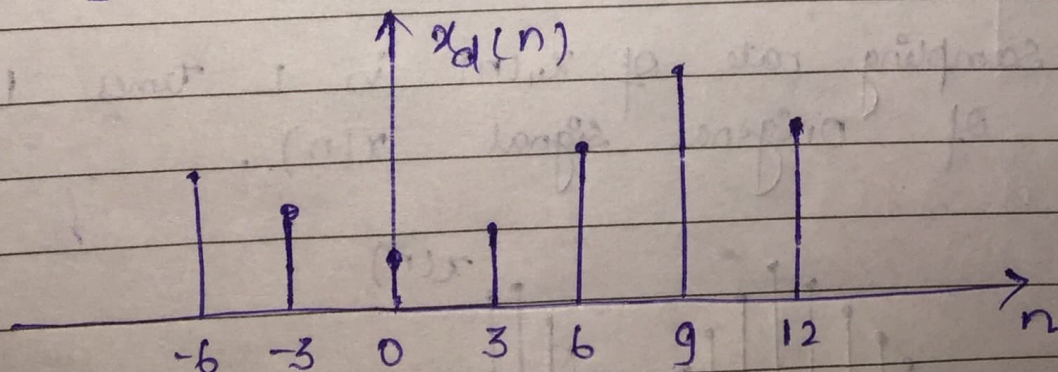 x_d(n)
-6 -3 0 3 6 9 12 n